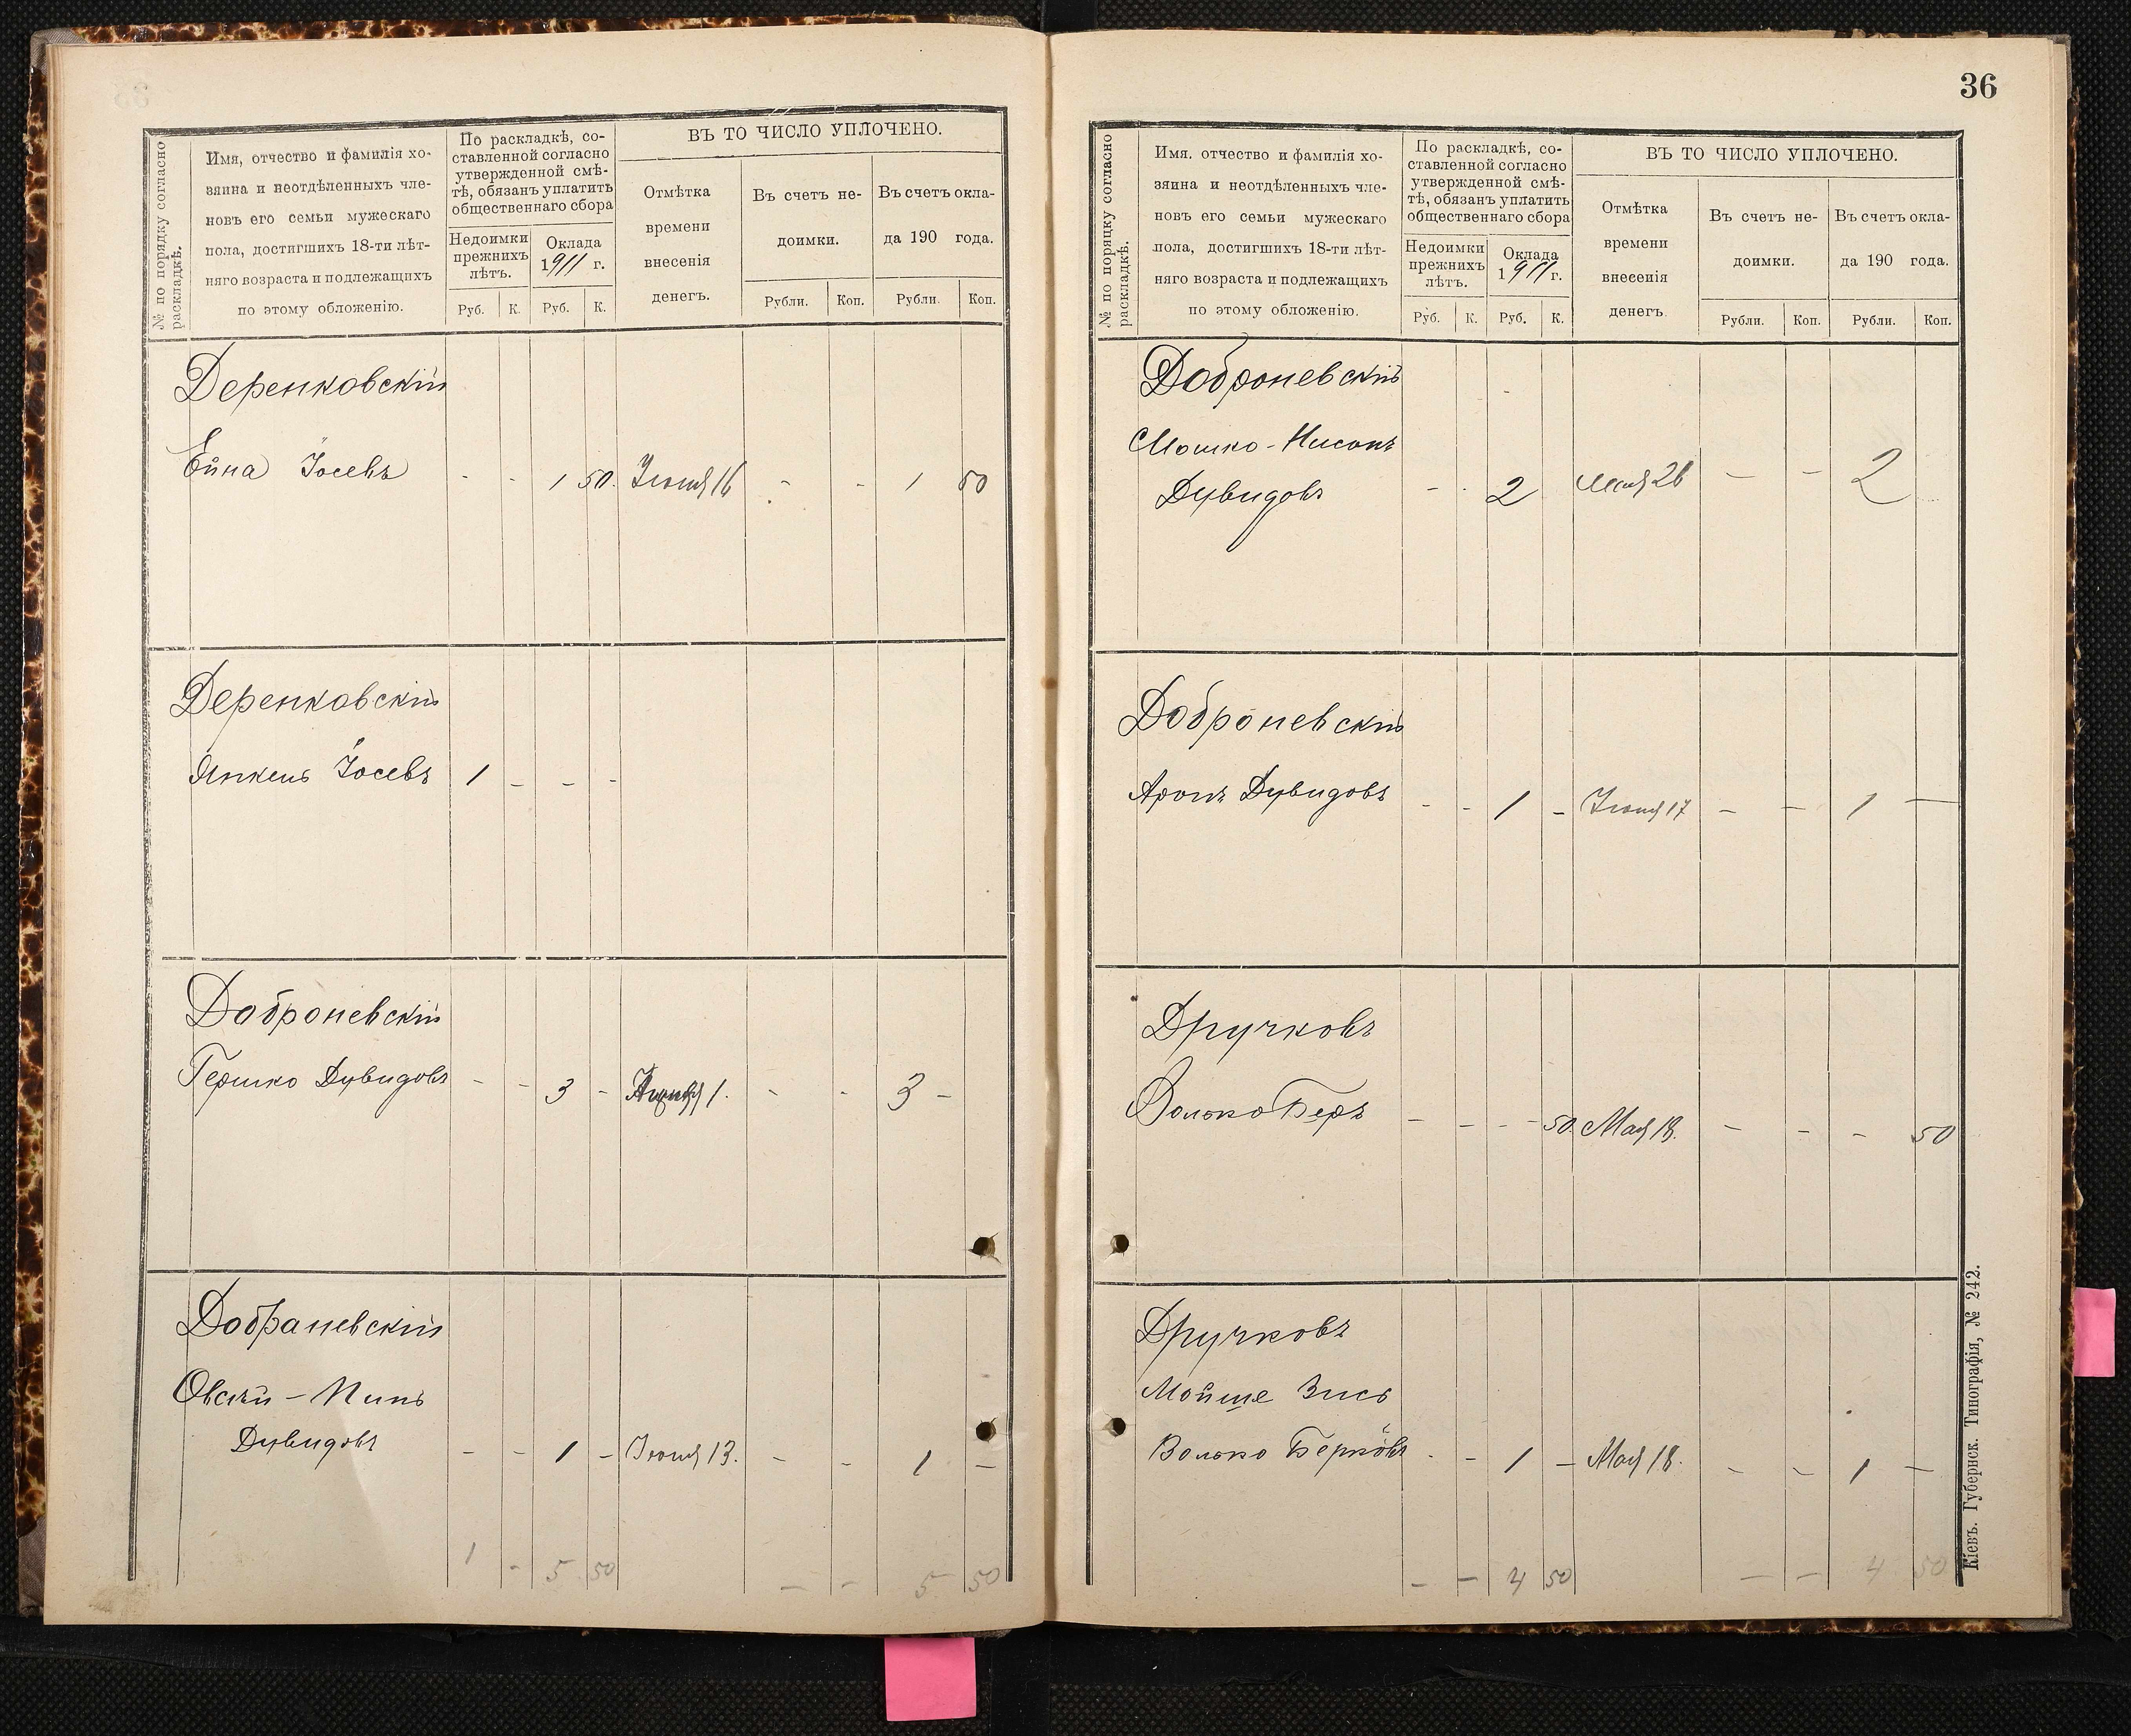 № по порядку согласно
раскладкѣ.
Имя, отчество и фамилія хо-
зяина и неотдѣленныхъ чле-
новъ его семьи мужескаго
пола, достигшихъ 18-ти лѣт-
няго возраста и подлежащихъ
по этому обложенію.
По раскладкѣ, со-
ставленной согласно
утвержденной смѣ-
тѣ, обязанъ уплатить
общественнаго сбора
Недоимки
прежнихъ
лѣтъ.
Оклада
1911 г.
Руб. К. Руб. К.
ВЪ ТО ЧИСЛО УПЛОЧЕНО.
Отмѣтка
времени
внесенія
денегъ.
Въ счетъ не-
доимки.
Въ счетъ окла-
да 190 года.
Рубли. Коп. Рубли. Коп.
Деренковскій
Ейна Іосевъ - - 1 50. Іюня 16 - - 1 50
Деренковскій
Янкель Іосевъ 1 - - -
Доброневскій
Гершко Дувидовъ - - 3 - 1. - - 3 -
Добраневскій
Овсѣй - Пинь
Дувидовъ - - 1 - Іюня 13. - - 1 -
1 - 5 50 - - 5 50
36
№ по порядку согласно
раскладкѣ.
Имя. отчество и фамилія хо-
зяина и неотдѣленныхъ чле-
новъ его семьи мужескаго
пола, достигшихъ 18-ти лѣт-
няго возраста и подлежащихъ
по этому обложенію.
По раскладкѣ, со-
ставленной согласно
утвержденной смѣ-
тѣ, обязанъ уплатить
общественнаго сбора
Недоимки
прежнихъ
лѣтъ.
Оклада
1911 г.
Руб. К. Руб. К.
ВЪ ТО ЧИСЛО УПЛОЧЕНО.
Отмѣтка
времени
внесенія
денегъ.
Въ счетъ не-
доимки.
Въ счетъ окла-
да 190 года.
Рубли. Коп. Рубли. Коп.
Доброневскій
Мошко - Нисонъ
Дувидовъ - - 2 Мая 26 - - 2
Доброневскій
Аронъ Дувидовъ - - 1 - Іюня 17 - - 1 -
Дручковъ
Волько Беръ - - - 50. Мая 18. - - - 50
Дручковъ
Мойше Зись
Волько Берковъ - - 1 - Мая 18. - - 1 -
- - 4 50 - - 4 50
Кіевъ. Губернск. Типографія, № 242.